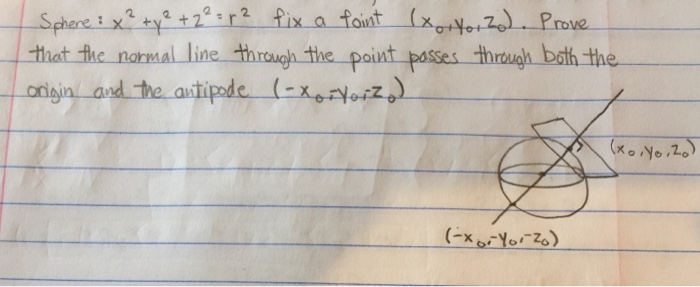 Sphere : x² + y² + z² = r² fix a foint (x₀, y₀, z₀). Prove
that the normal line through the point passes through both the
origin and the antipode (-x₀, -y₀, -z₀)
(x₀, y₀, z₀)
(-x₀, -y₀, -z₀)